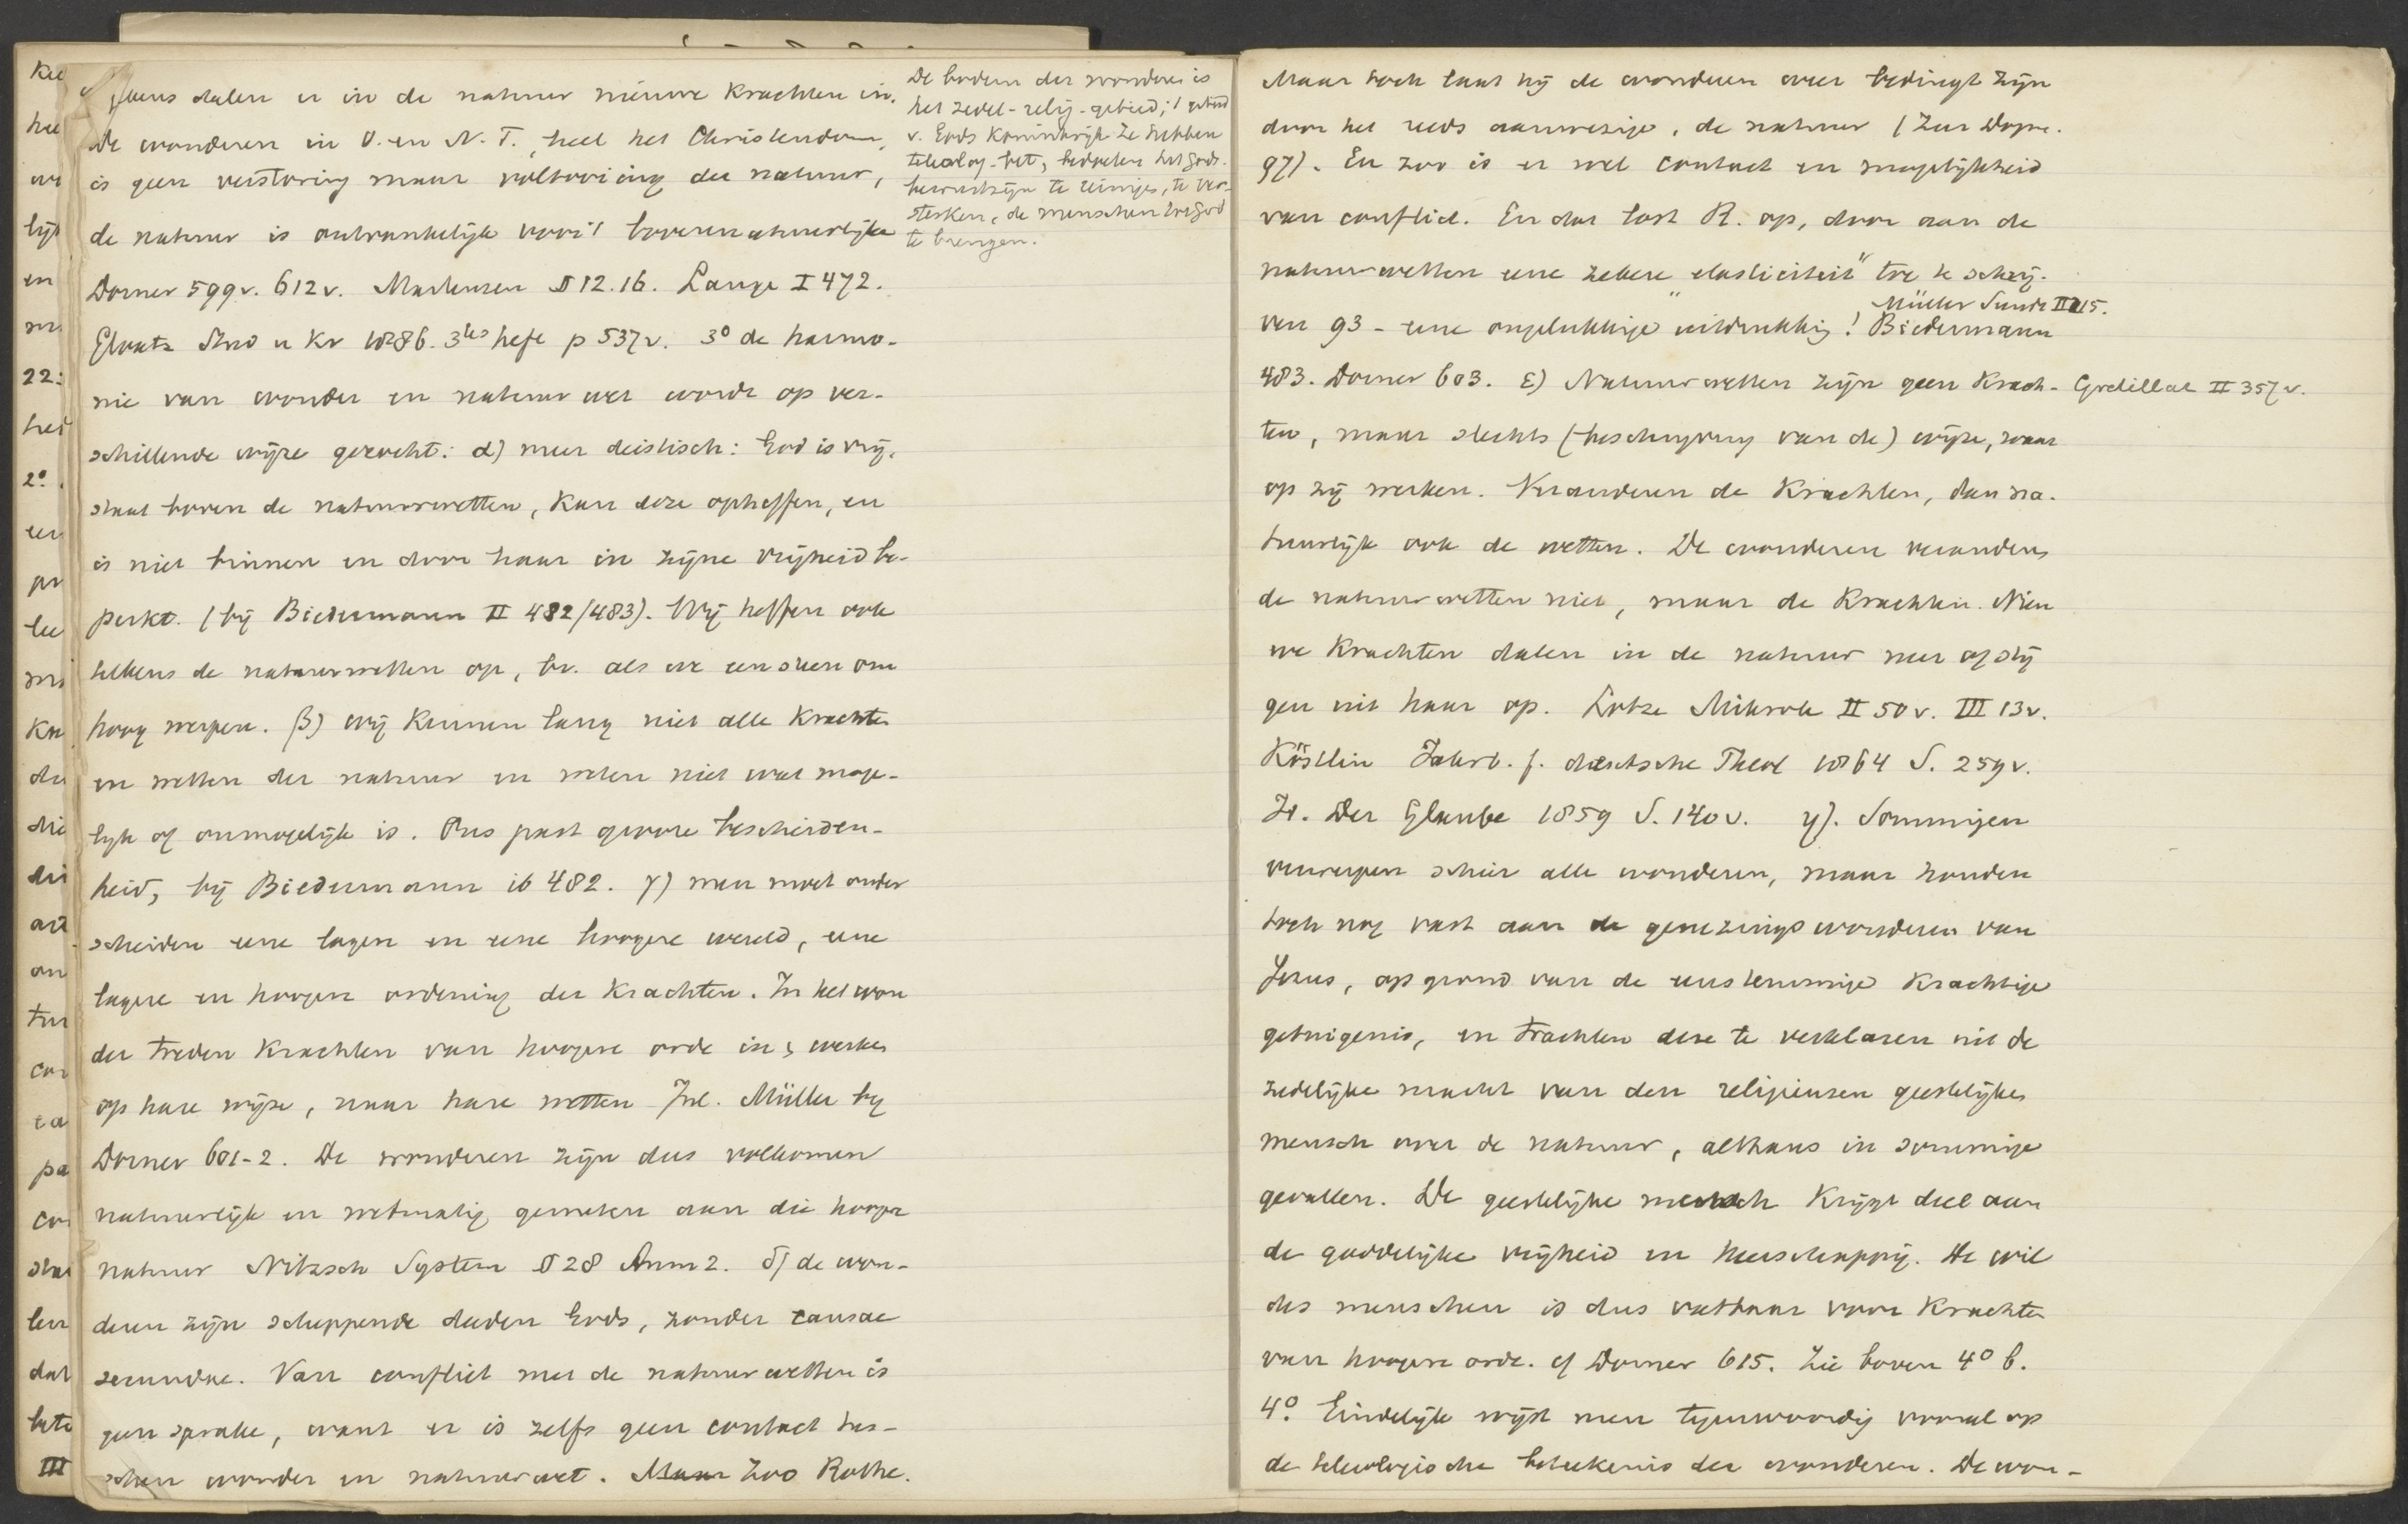 dalen er in de natuur nieuwe krachten in.
De wonderen in O. en N. T., heel het Christendom,
is geen verstoring maar voltooiing der natuur,
de natuur is ontvankelijk voor 't bovennatuurlijke
Dorner 599v. 612v. Martensen § 12.16. Lange I 472.
Stud u Kr 1886. 3tes heft p 537v. 3° de harmo-
nie van wonder en natuurwet wordt op ver-
schillende wijze gezocht: α) meer deistisch: God is vrij,
staat boven de natuurwetten, kan deze opheffen, en
is niet binnen en door haar in zijne vrijheid be-
perkt. (bij Biedermann II 482/483). Wij heffen ook
telkens de natuurwetten op, bv. als we een steen om
hoog werpen. β) wij kennen lang niet alle krachten
en wetten der natuur en weten niet wat moge-
lijk of onmogelijk is. Ons past groote bescheiden-
heid, bij Biedermann ib 482. γ) men moet onder
scheiden eene lagere en eene hoogere wereld, eene
lagere en hoogere ordening der krachten. In het won
der treden krachten van hoogere orde in, werken
op hare wijze, naar hare wetten Jul. Müller bij
Dorner 601-2. De wonderen zijn dus volkomen
natuurlijk en wetmatig gemeten aan die hoogere
natuur Nitzsch System § 28 Anm 2. δ) de won-
deren zijn scheppende daden Gods, zonder causae
secundae. Van conflict met de natuurwetten is
geen sprake, want er is zelfs geen contact tus-
schen wonder en natuurwet. Maar Zoo Rothe.
De bodem der wonderen is
het zedel-relig-gebied; 't gebied
v. Gods Koninkrijk Ze hebben
teleolog-bet, bedoelen het Gods-
bewustzijn te reinigen, te ver-
sterken, de menschen tot God
te brengen.
Maar toch laat hij de wonderen weer bedingt zijn
door het reeds aanwezige, de natuur (Zur Dogm.
97). En zoo is er wel contact en mogelijkheid
van conflict. En dat lost R. op, door aan de
natuurwetten eene zekere „elasticiteit" toe te schrij-
Müller Sünde II 215.
ven 93 - eene ongelukkige uitdrukking! Biedermann
483. Dorner 603. ε) Natuurwetten zijn geen krach- Gretillat II 357v.
ten, maar slechts (beschrijving van de) wijze, waar
op zij werken. Veranderen de krachten, dan na-
tuurlijk ook de wetten. De wonderen veranderen
de natuurwetten niet, maar de krachten. Nieu
we krachten dalen in de natuur neer of stij
gen uit haar op. Lotze Mikrok II 50v. III 13v.
Köstlin Jahrb. f. deutsche Theol 1864 S. 259v.
Id. Der Glaube 1859 S. 140v. η). Sommigen
verwerpen schier alle wonderen, maar houden
toch nog vast aan de genezingswonderen van
Jezus, op grond van de eenstemmige krachtige
getuigenis, en trachten deze te verklaren uit de
zedelijke macht van den religieuzen geestelijken
mensch over de natuur, althans in sommige
gevallen. De geestelijke mensch krijgt deel aan
de goddelijke vrijheid en heerschappij. De wil
des menschen is dus vatbaar voor krachten
van hoogere orde. cf Dorner 615. Zie boven 4° b.
4°. Eindelijk wijst men tegenwoordig vooral op
de teleologische beteekenis der wonderen. De won-